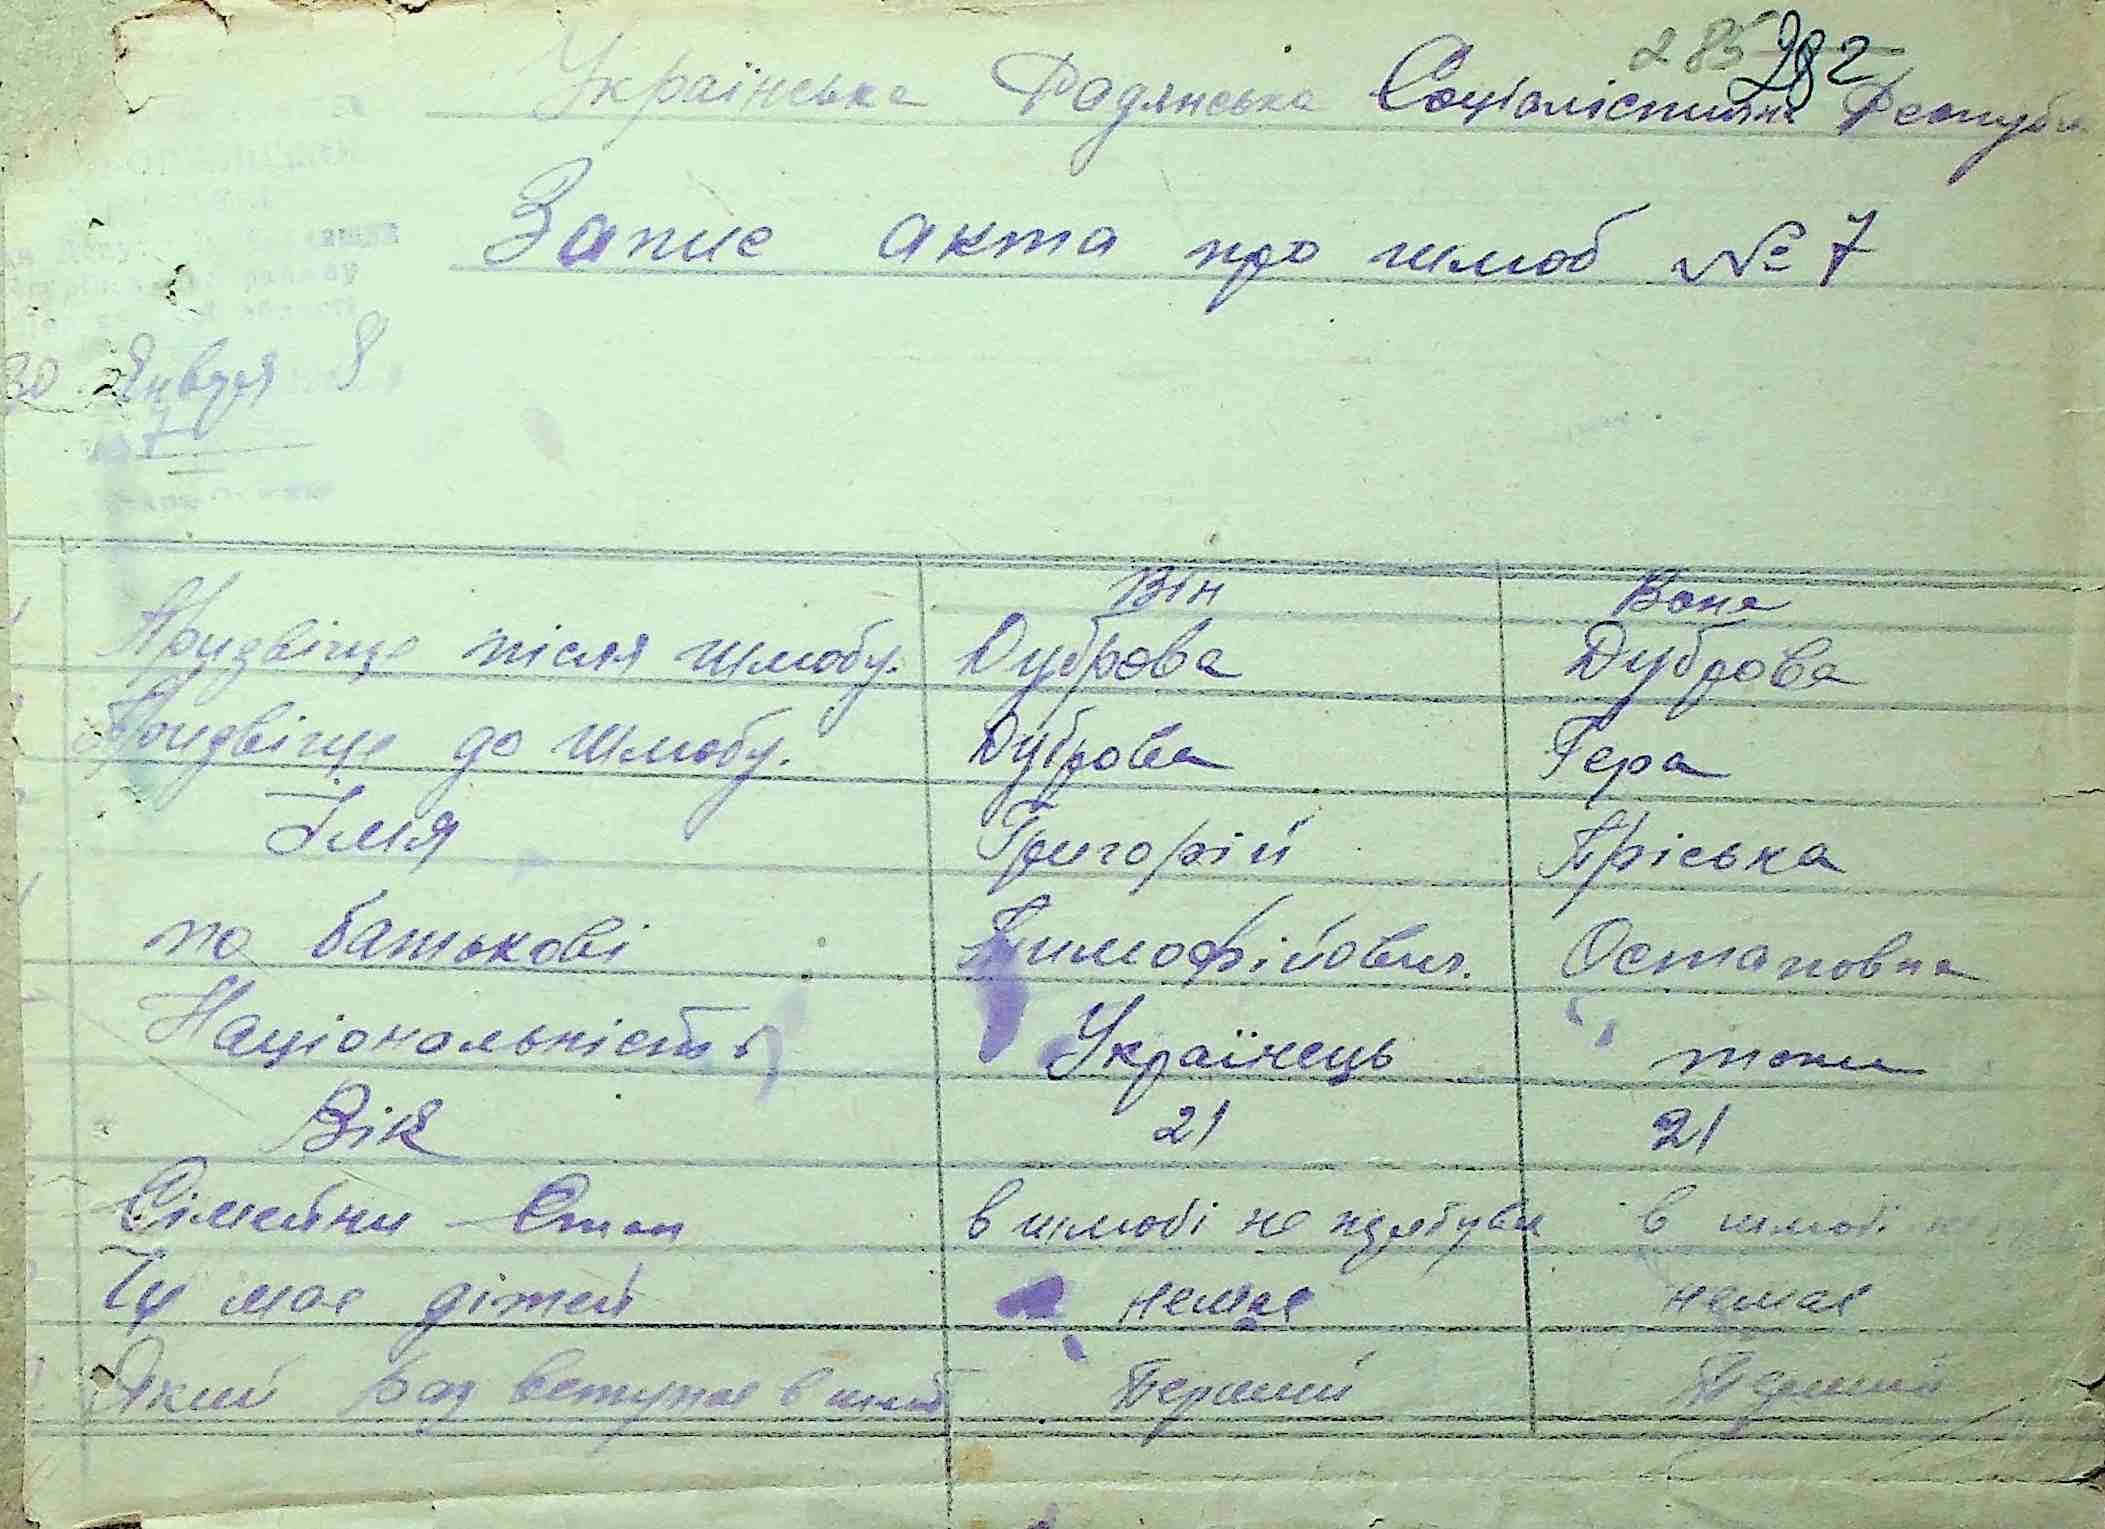 285 282
Українська Радянська Соціалістична Республі
Запис акта про шлюб № 7
району
області
30 Января 8
7
Він Вона
Призвіще після шлюбу. Дуброва Дуброва
Призвіще до шлюбу. Дуброва Гера
Імя Григорій Пріська
по батькові Тимофійович. Остаповна
Національність Українець " токи
Вік 21 21
Сімейни Стан в шлюбі не прибував в шлюбі
Чи має дітей немає немає
Який раз вступає в шлюб Перший Перший